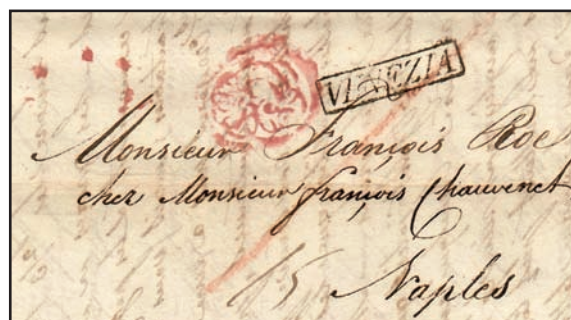 VENEZIA
Monsieur François Roe
chez Monsieur françois Chauvenet
15 Naples